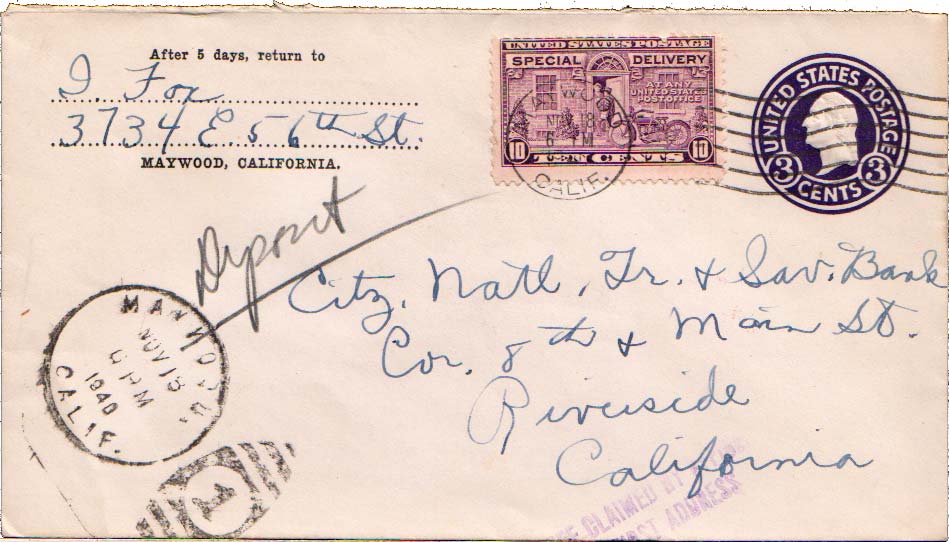 After 5 days, return to
I. Fox
3734 E. 56th St.
MAYWOOD, CALIFORNIA.
UNITED STATES POSTAGE
SPECIAL DELIVERY
AT ANY
UNITED STATES
POST OFFICE
10 TEN CENTS 10
MAYWOOD
NOV 18
6 PM
CALIF.
UNITED STATES POSTAGE
3 CENTS 3
Deposit
Citz. Natl. Tr. & Sav. Bank
Cor. 8th & Main St.
Riverside
California
MAYWOOD
NOV 18
6 PM
1940
CALIF.
1
CLAIMED BY
ADDRESS